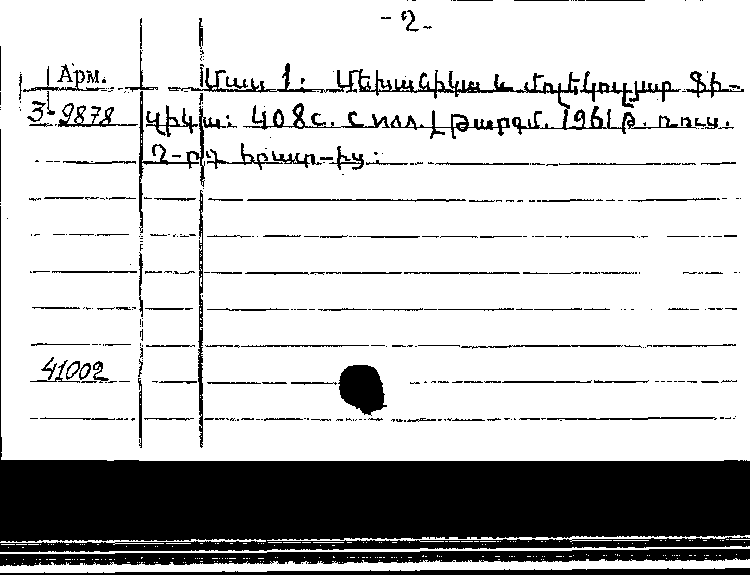 -2-
Арм.
3-9878
Մաս 1: Մեխանիկա և մոլեկուլյար ֆի-
զիկա: 408с. с илл. [Թարգմ. 1961թ. ռուս.
2-րդ հրատ-ից:
41002